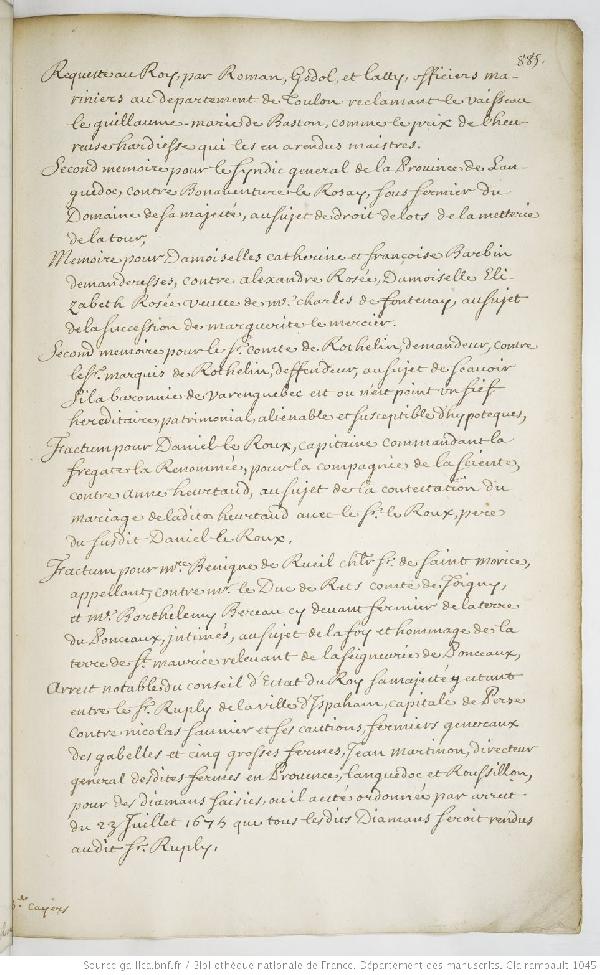 885.
Requeste au Roy, par Roman, Godol, et Lally, officiers ma-
riniers au departement de Toulon reclamant le vaisseau
le guillaume-marie de Baston, comme le prix de l'heu-
reuse hardiesse qui les en a rendus maistres.
Second memoire pour le syndic general de la Province de Lan-
guedoc, contre Bonaventure le Rosay, sous fermier du
Domaine de sa majesté, au sujet de droit de lots de la metterie
de la tour,
Memoire pour Damoiselles catherine et françoise Barbin
demanderesses, contre alexandre Rosée, Damoiselle Eli-
zabeth Rosée veuve de mr. charles de fontenay, au sujet
de la succession de marguerite le mercier.
Second memoire pour le sr. comte de Rothelin, demandeur, contre
le sr. marquis de Rothelin, deffendeur, au sujet de scavoir
si la baronnie de Varenguebec est ou n'est point un fief
hereditaire, patrimonial, alienable et susceptible d'hypoteques,
Factum pour Daniel le Roux, capitaine commandant la
fregate la Renommée, pour la compagnie de la
contre anne heurtaud, au sujet de la contestation du
mariage de ladite heurtaud avec le sr. le Roux, pere
du susdit Daniel le Roux.
Factum pour mre. Benigne de Rueil chlr sr. de saint morice,
appellant, contre mr. le Duc de Rets comte de Joigny,
et mr. Barthelemy Bereau cy devant fermier de la terre
du Ponceaux, intimés, au sujet de la foy et hommage de la
terre de st. maurice relevant de la seigneurie de Ponceaux,
Arrest notable du conseil d'Estat du Roy sa majesté y estant
entre le sr. Ruply de la ville d'Ispaham, capitale de Perse
contre nicolas saunier et ses cautions, fermiers generaux
des gabelles et cinq grosses fermes, Jean martinon, directeur
general desdites fermes en Provence, Languedoc et Roussillon,
pour des diamans saisis, ou il a esté ordonnée par arrest
du 23 Juillet 1675 que tous lesdits Diamans seroit rendus
audit sr. Ruply.
cayers
Source gallica.bnf.fr / Bibliothèque nationale de France. Département des manuscrits. Clairambault 1045